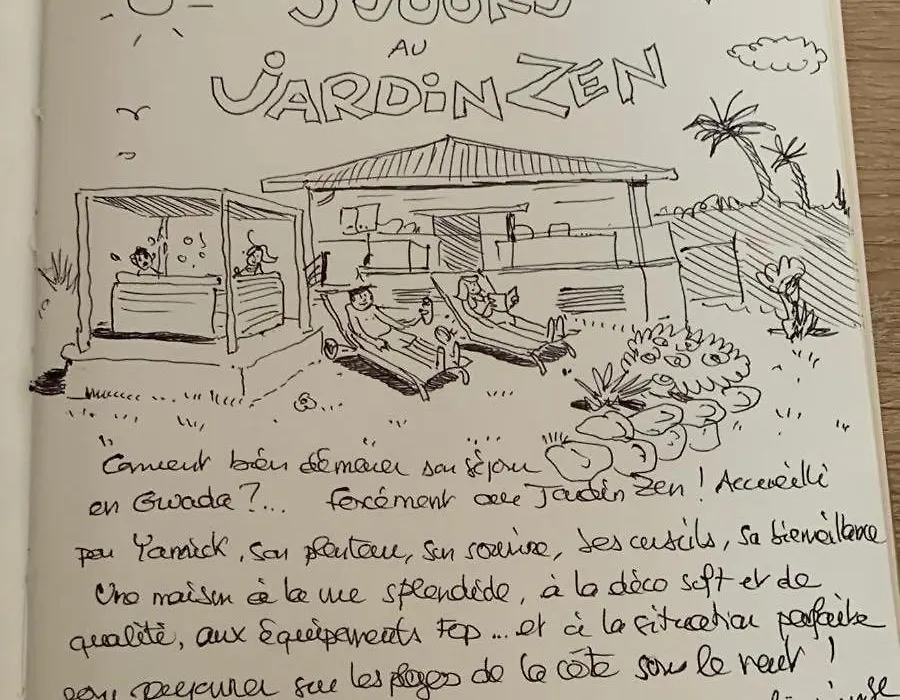 5 JOURS
AU
JARDIN ZEN
Coment bien démarrer son séjour
en Gwada ?... forcément au Jardin Zen ! Accueilli
par Yannick, son planteur, son sourire, ses conseils, sa bienveillance
Une maison à la vue splendide, à la déco soft et de
qualité, aux équipements top ... et à la situation parfaite
pour sur les plages de la côte sous le vent !